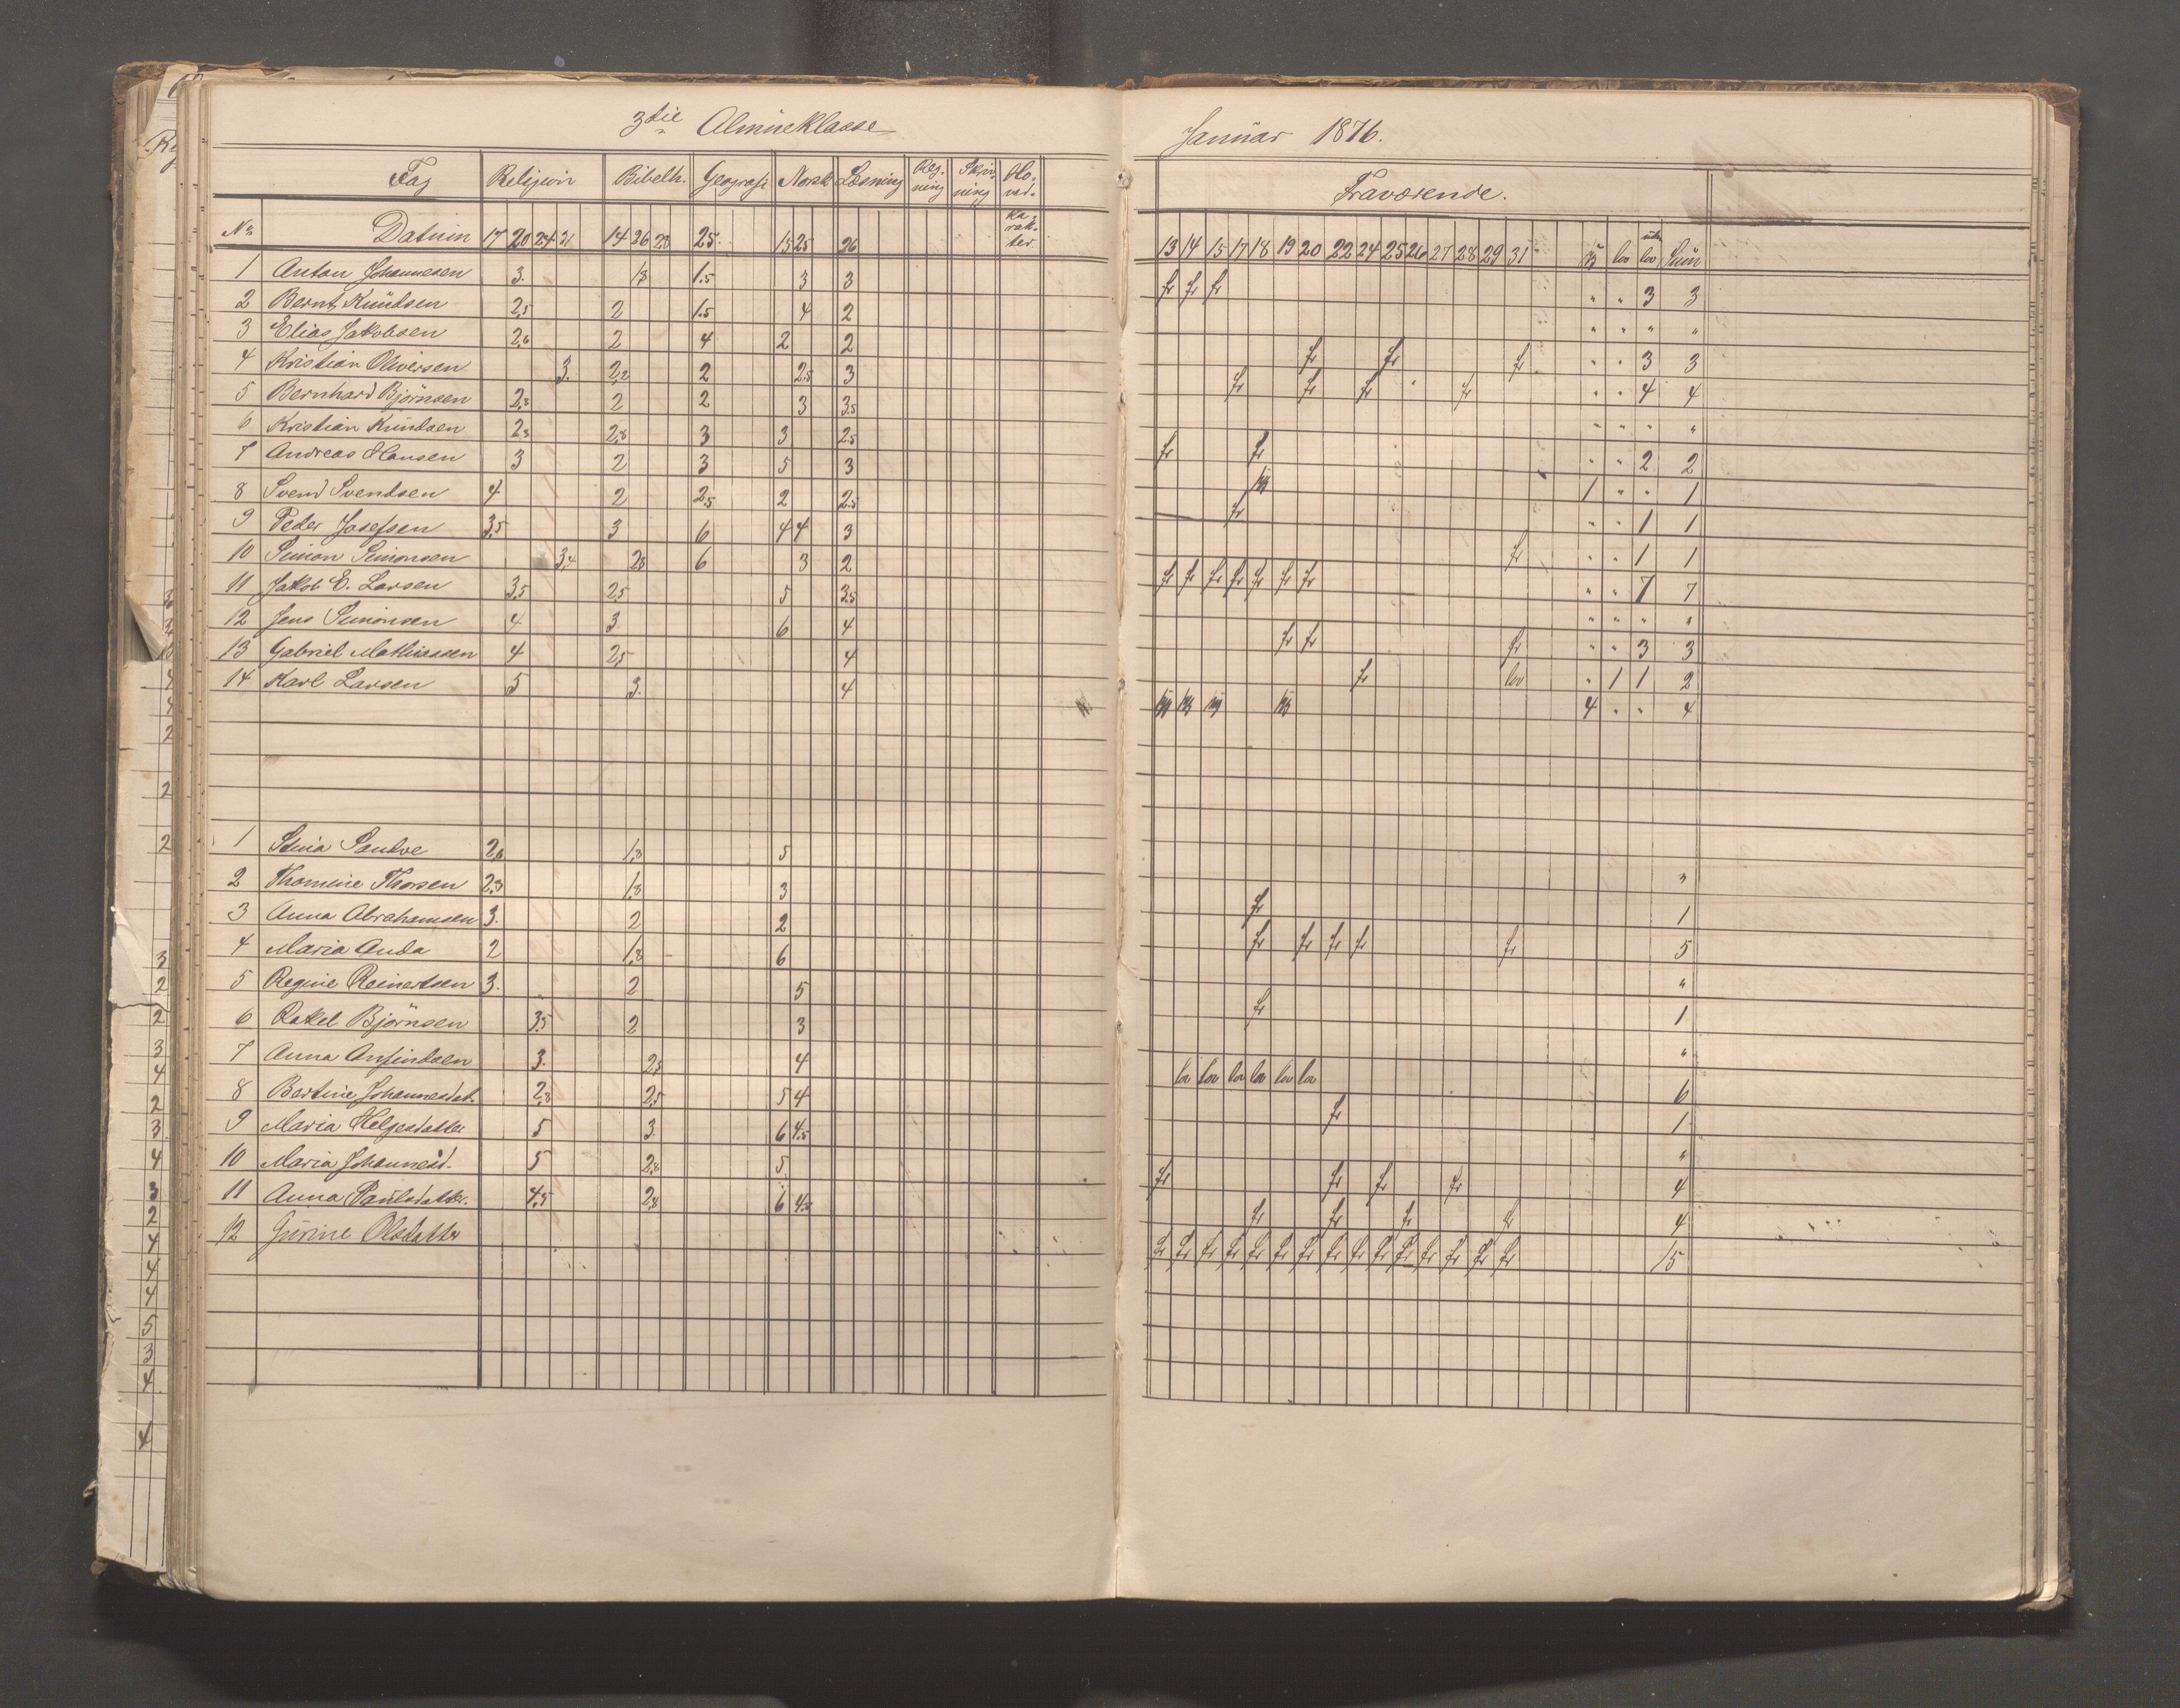 3die Almueklasse
Fag Religion Bibelh. Geografi Norsk Læsning Reg-ning Skriv-ning Ho-ved-ka-rak-ter.
No Datum 17 20 24 31 14 26 28 25. 15 25 26
1 Anton Johannesen 3. 1,8 1.5 3 3
2 Bernt Knudsen 2,5 2 1.5 4 2
3 Elias Jakobsen 2,6 2 4 2 2
4 Kristian Oliversen 3. 2,2 2 2.5 3
5 Bernhard Björnsen 2,8 2 2 3 3.5
6 Kristian Knudsen 2,8 2,8 3 3 2.5
7 Andreas Hansen 3 2 3 5 3
8 Svend Svendsen 4 2 2,5 2 2.5
9 Peder Josefsen 3,5 3 6 4 4 3
10 Simon Simonsen 3,4 2,8 6 3 2
11 Jakob E. Larsen 3,5 2,5 5 3.5
12 Jens Simonsen 4 3 6 4
13 Gabriel Mathiassen 4 2,5 4
14 Karl Larsen 5 3. 4
1 Stina Sandve 2,6 1,8 5
2 Thomine Thorsen 2,8 1,8 3
3 Anna Abrahamsen 3. 2 2
4 Maria Anda 2 1,8 6
5 Regine Reinertsen 3. 2 5
6 Rakel Björnsen 3,5 2 3
7 Anna Anfindsen 3. 2,5 4
8 Bertine Johannesdat. 2,8 2,5 5 4
9 Maria Helgesdatter 5 3. 6 4.5
10 Maria Johannesd. 5 2,8 5
11 Anna Paulsdatter. 4,5 2,8 6 4.5
12 Gurine Olsdatter
Januar 1876.
Fraværende.
13 14 15 17 18 19 20 22 24 25 26 27 28 29 31 lov uden lov Sum
fr fr fr " " 3 3
" " " "
fr fr fr " " 3 3
fr fr fr fr " " 4 4
" " " "
fr fr " " 2 2
1 " " 1
fr " " 1 1
fr " " 1 1
fr fr fr fr fr fr fr " " 7 7
" " " "
fr fr fr " " 3 3
fr lov " 1 1 2
4 " " 4
"
fr 1
fr fr fr fr fr 5
"
fr 1
"
lov lov lov lov lov lov 6
fr 1
"
fr fr fr fr 4
fr fr fr fr 4
fr fr fr fr fr fr fr fr fr fr fr fr fr fr fr 15